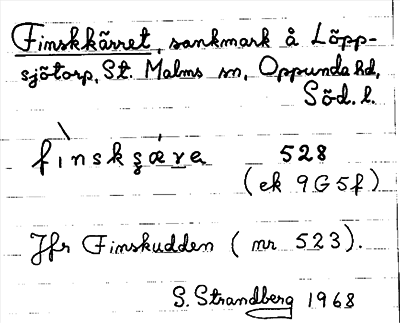 Finskkärret, sankmark å Löpp-
sjötorp, St. Malms sn, Oppunda hd,
Söd. l.
fìnskʂæ̀ra 528
(ek 9G5f)
Jfr Finskudden (nr 523).
S. Strandberg 1968